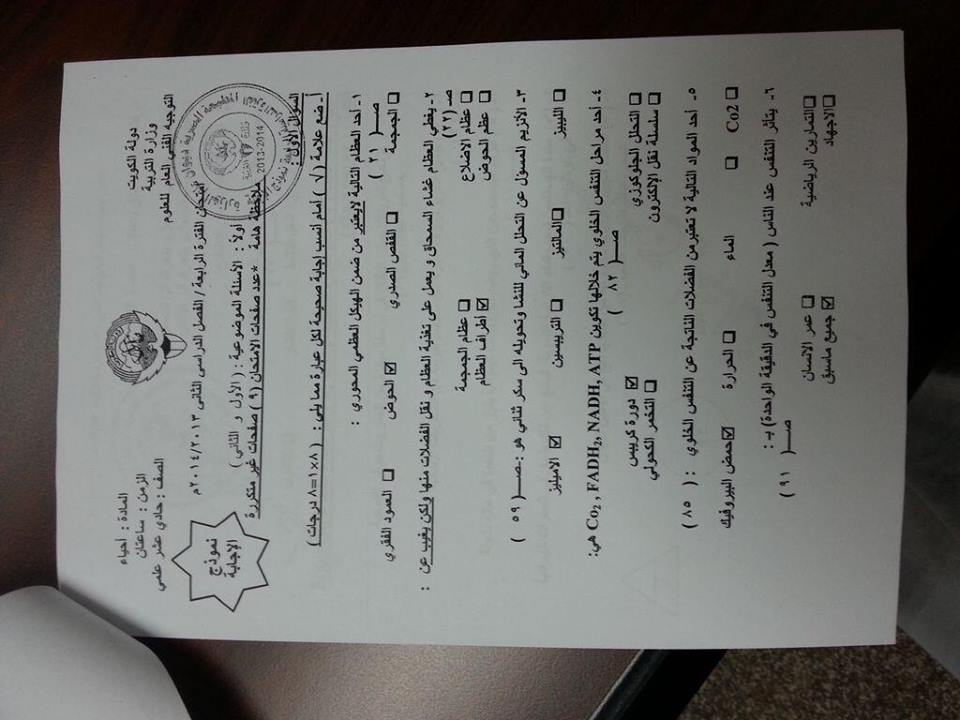 دولة الكويت
وزارة التربية
التوجيه الفني العام للعلوم
المادة : أحياء
الزمن : ساعتان
الصف : حادي عشر علمي
نموذج
الإجابة
امتحان الفترة الرابعة / الفصل الدراسى الثانى ٢٠١٤/٢٠١٣م
ملاحظة هامة *عدد صفحات الامتحان (٩) صفحات غير متكررة
أولاً : الأسئلة الموضوعية : ( الأول و الثاني )
2013-2014
السؤال الأول :
أ- ضع علامة ( √ ) أمام أنسب إجابة صحيحة لكل عبارة مما يلي : ( ٨×١=٨ درجات )
١- أحد العظام التالية لايعتبر من ضمن الهيكل العظمي المحوري :
صـ( ٢١ )
☐ الجمجمة ☐ القفص الصدري ☑ الحوض ☐ العمود الفقري
٢- يغطي العظام غشاء السمحاق و يعمل على تغذية العظام و نقل الفضلات منها ولكن يغيب عن :
صـ (٢٢)
☐ عظم الحوض ☑ أطراف العظام
☐ عظام الاضلاع ☐ عظام الجمجمة
٣- الأنزيم المسؤل عن التحلل المائي للنشا وتحويله الى سكر ثنائي هو : صـ( ٥٩ )
☐ الليبيز ☐ المالتيز ☐ التريبسين ☑ الاميليز
٤- أحد مراحل التنفس الخلوي يتم خلالها تكوين Co₂ , FADH₂, NADH, ATP هي:
صـ( ٨٢ )
☐ التحلل الجلوكوزي ☑ دورة كريبس
☐ سلسلة نقل الإلكترون ☐ التخمر الكحولي
٥- أحد المواد التالية لا تعتبر من الفضلات الناتجة عن التنفس الخلوي : ( ٨٥ )
☐ Co2 ☐ الماء ☐ الحرارة ☑ حمض البيروفيك
٦- يتأثر التنفس عند الناس ( معدل التنفس في الدقيقة الواحدة) بـ :
صـ( ٩١ )
☐ التمارين الرياضية ☐ عمر الانسان
☐ الاجهاد ☑ جميع ماسبق